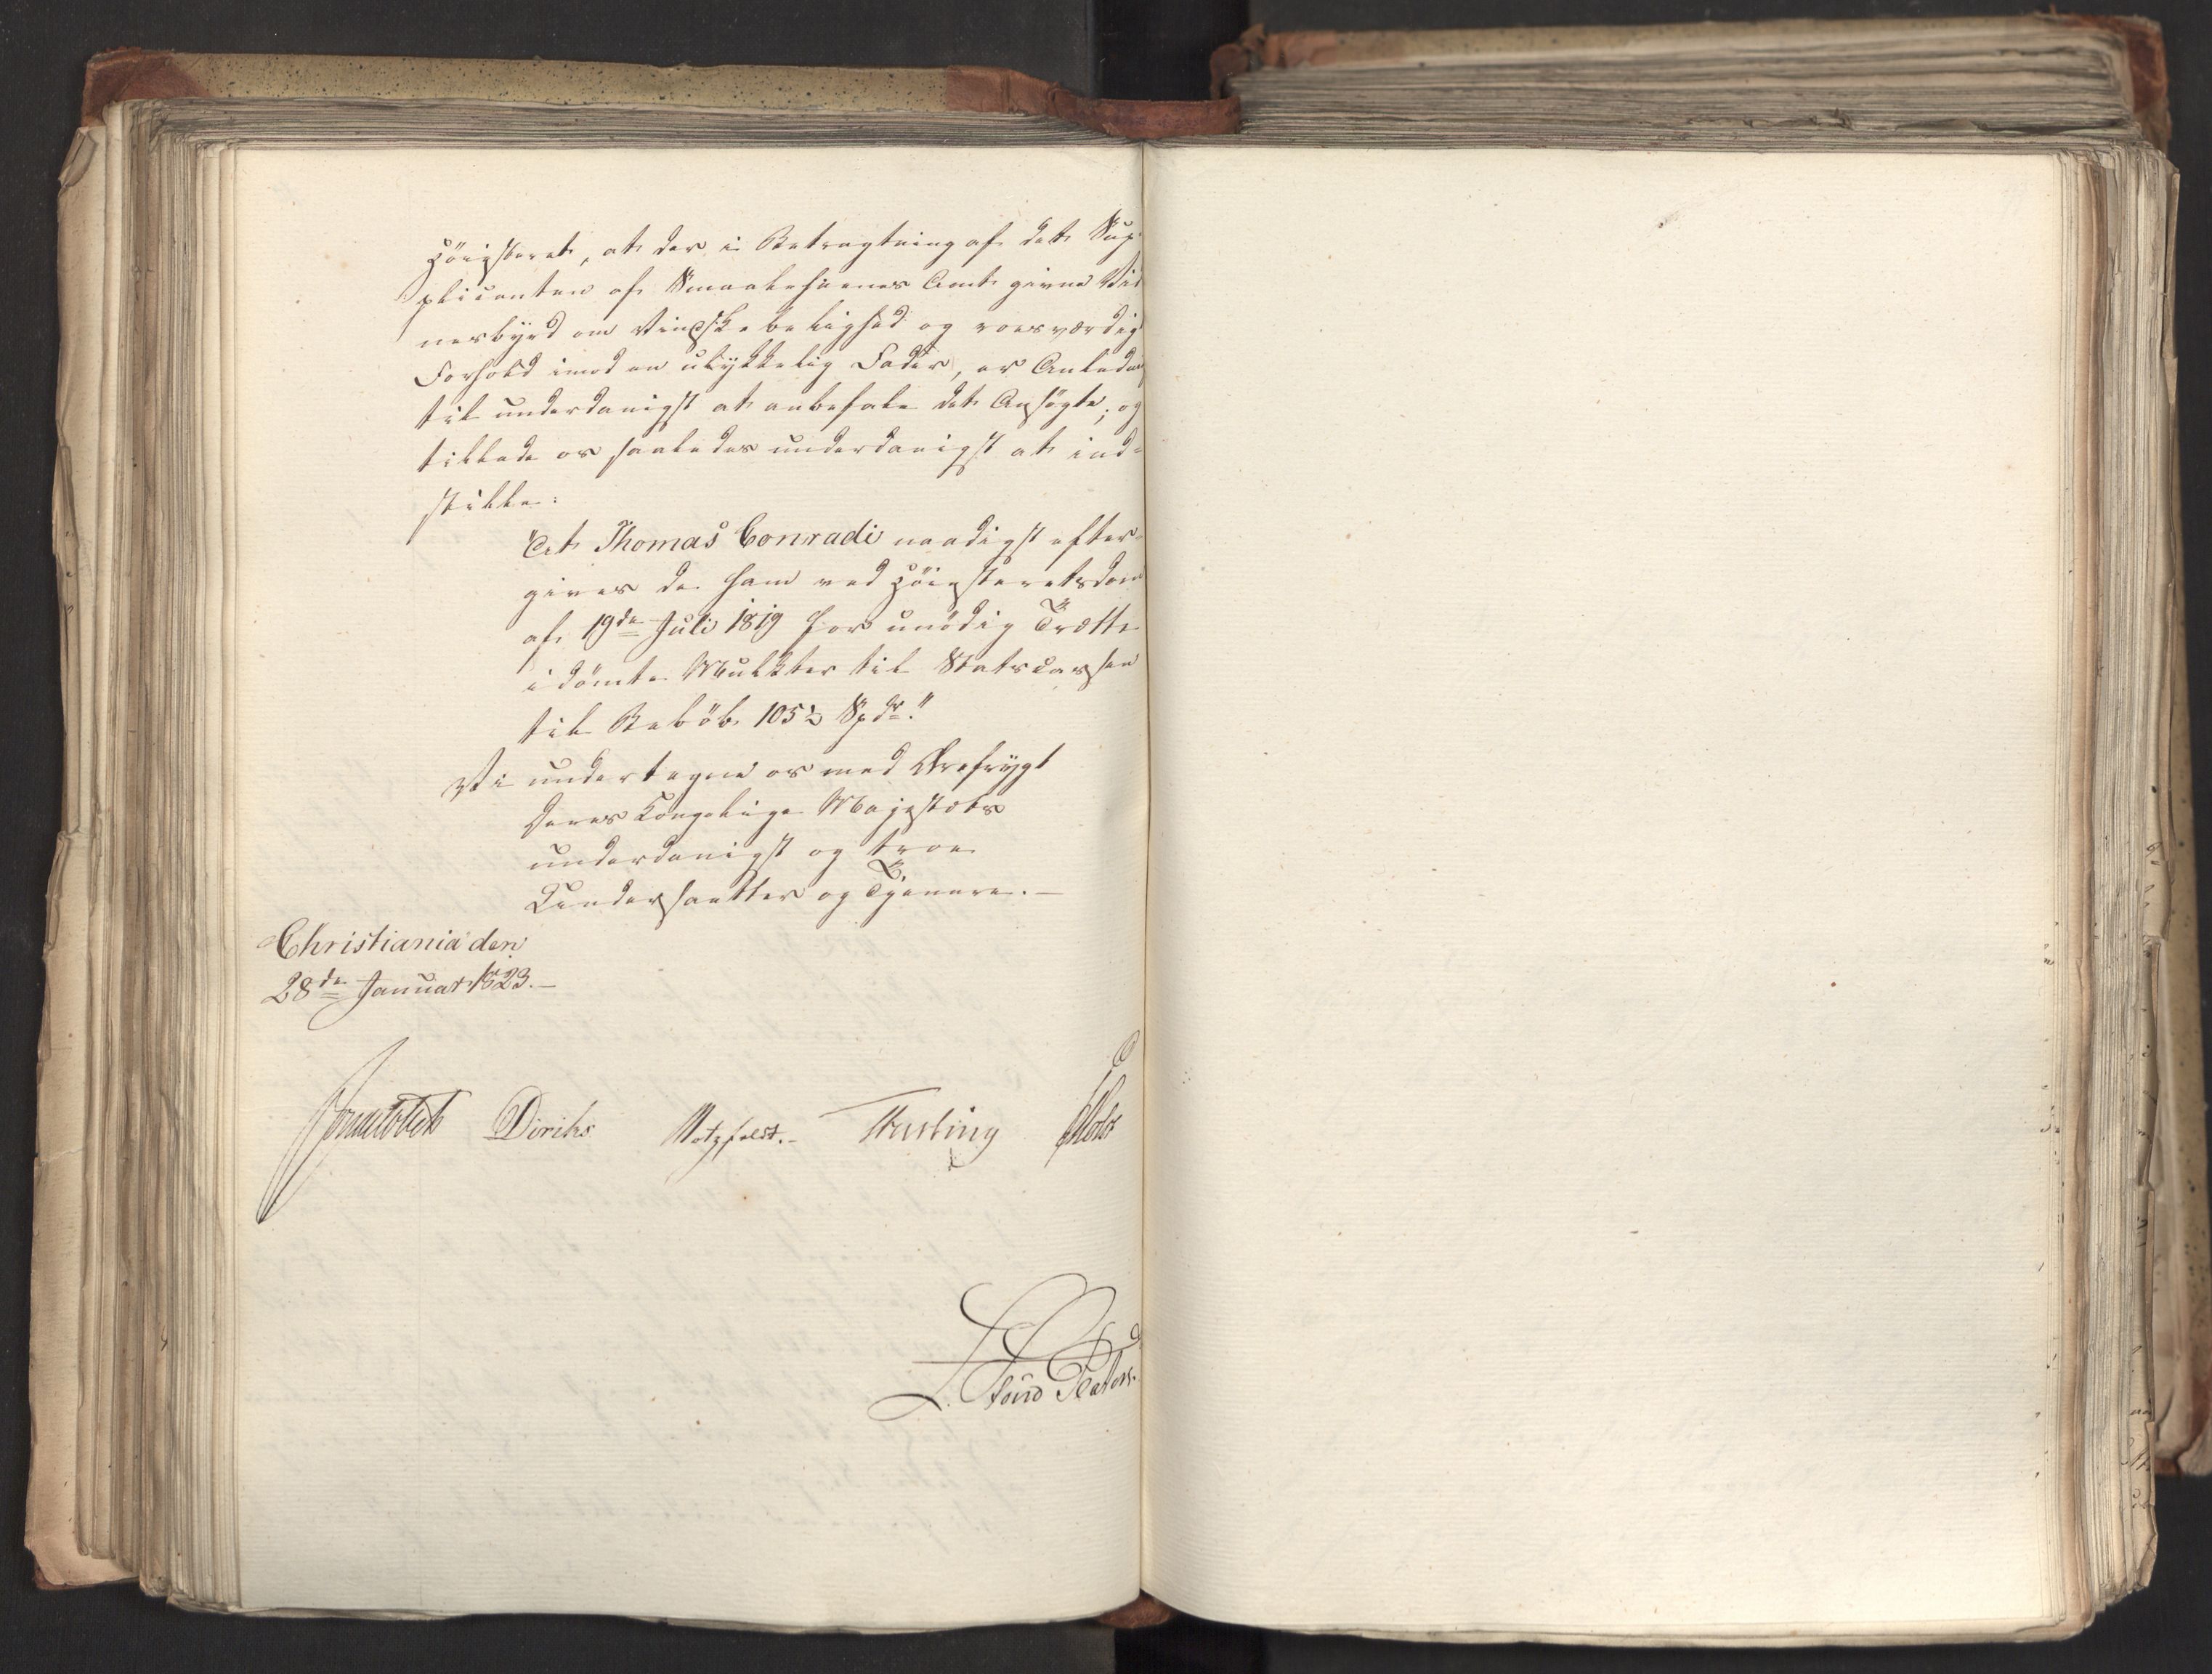 Höiesteret, at der i Betragtning af det Sup-
plicanten af Smaalehnenes Amt givne Vid
nesbyrd om Vindskibelighed og roesværdig
Forhold imod en ulykkelig Fader, er Anledn
til underdanigst at anbefale det Ansøgte; og
tillade os saaledes underdanigst at ind-
stille:
"At Thomas Conradi naadigst efter-
gives de ham ved Höiesteretsdom
af 19de Juli 1819 for unödig Trætte
idömte Mulkter til Statscassen
til Belöb 105½ Spdr."
Vi undertegne os med Ærefrygt
Deres Kongelige Majestæts
underdanigst og troe
Undersaatter og Tjenere.—
Christiania den
28de Januar 1823.—
Sommelhielm Diriks Motzfeldt.— Fasting Holst